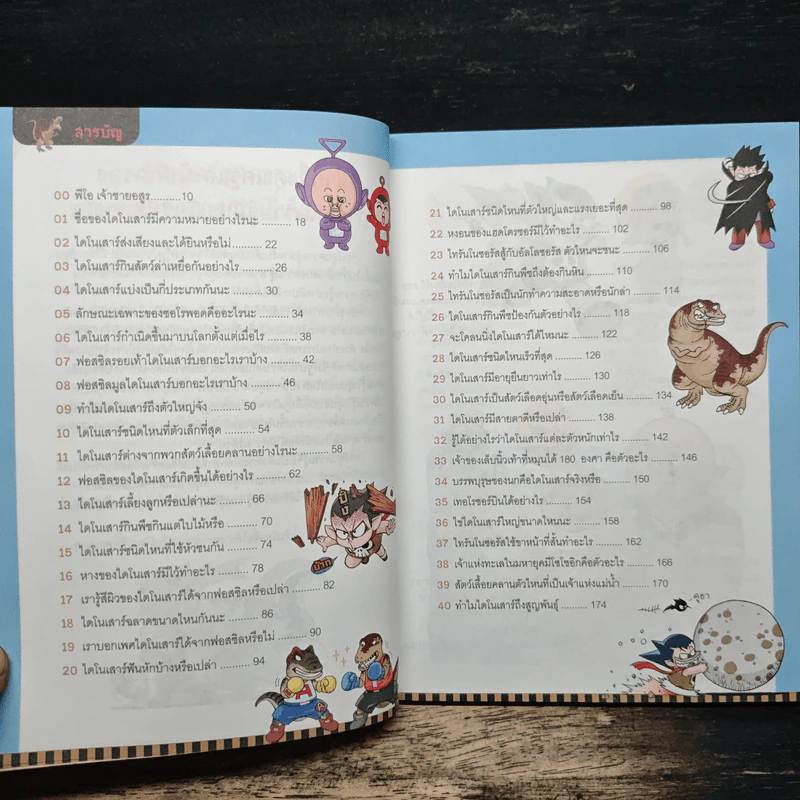 สารบัญ
00 พีโอ เจ้าชายอสูร.............10
01 ชื่อของไดโนเสาร์มีความหมายอย่างไรนะ .......... 18
02 ไดโนเสาร์ส่งเสียงและได้ยินหรือไม่.......... 22
03 ไดโนเสาร์กินสัตว์ล่าเหยื่อกันอย่างไร .......... 26
04 ไดโนเสาร์แบ่งเป็นกี่ประเภทกันนะ .......... 30
05 ลักษณะเฉพาะของซอโรพอดคืออะไรนะ .......... 34
06 ไดโนเสาร์กำเนิดขึ้นมาบนโลกตั้งแต่เมื่อไร .......... 38
07 ฟอสซิลรอยเท้าไดโนเสาร์บอกอะไรเราบ้าง .......... 42
08 ฟอสซิลมูลไดโนเสาร์บอกอะไรเราบ้าง .......... 46
09 ทำไมไดโนเสาร์ถึงตัวใหญ่จัง .......... 50
10 ไดโนเสาร์ชนิดไหนที่ตัวเล็กที่สุด .......... 54
11 ไดโนเสาร์ต่างจากพวกสัตว์เลื้อยคลานอย่างไรนะ .......... 58
12 ฟอสซิลของไดโนเสาร์เกิดขึ้นได้อย่างไร .......... 62
13 ไดโนเสาร์เลี้ยงลูกหรือเปล่านะ .......... 66
14 ไดโนเสาร์กินพืชกินแต่ใบไม้หรือ .......... 70
15 ไดโนเสาร์ชนิดไหนที่ใช้หัวชนกัน .......... 74
16 หางของไดโนเสาร์มีไว้ทำอะไร .......... 78
17 เรารู้สีผิวของไดโนเสาร์ได้จากฟอสซิลหรือเปล่า .......... 82
18 ไดโนเสาร์ฉลาดขนาดไหนกันนะ .......... 86
19 เราบอกเพศไดโนเสาร์ได้จากฟอสซิลหรือไม่ .......... 90
20 ไดโนเสาร์ฟันหักบ้างหรือเปล่า .......... 94
21 ไดโนเสาร์ชนิดไหนที่ตัวใหญ่และแรงเยอะที่สุด .......... 98
22 หงอนของแฮดโดรซอร์มีไว้ทำอะไร .......... 102
23 ไทรันโนซอรัสสู้กับอัลโลซอรัส ตัวไหนจะชนะ .......... 106
24 ทำไมไดโนเสาร์กินพืชถึงต้องกินหิน .......... 110
25 ไทรันโนซอรัสเป็นนักทำความสะอาดหรือนักล่า .......... 114
26 ไดโนเสาร์กินพืชป้องกันตัวอย่างไร .......... 118
27 จะโคลนนิ่งไดโนเสาร์ได้ไหมนะ .......... 122
28 ไดโนเสาร์ชนิดไหนเร็วที่สุด .......... 126
29 ไดโนเสาร์มีอายุยืนยาวเท่าไร .......... 130
30 ไดโนเสาร์เป็นสัตว์เลือดอุ่นหรือสัตว์เลือดเย็น .......... 134
31 ไดโนเสาร์มีสายตาดีหรือเปล่า .......... 138
32 รู้ได้อย่างไรว่าไดโนเสาร์แต่ละตัวหนักเท่าไร .......... 142
33 เจ้าของเล็บนิ้วเท้าที่หมุนได้ 180 องศา คือตัวอะไร .......... 146
34 บรรพบุรุษของนกคือไดโนเสาร์จริงหรือ .......... 150
35 เทอโรซอร์บินได้อย่างไร .......... 154
36 ไข่ไดโนเสาร์ใหญ่ขนาดไหนนะ .......... 158
37 ไทรันโนซอรัสใช้ขาหน้าที่สั้นทำอะไร .......... 162
38 เจ้าแห่งทะเลในมหายุคมีโซโซอิกคือตัวอะไร .......... 166
39 สัตว์เลื้อยคลานตัวไหนที่เป็นเจ้าแห่งแม่น้ำ .......... 170
40 ทำไมไดโนเสาร์ถึงสูญพันธุ์ .......... 174